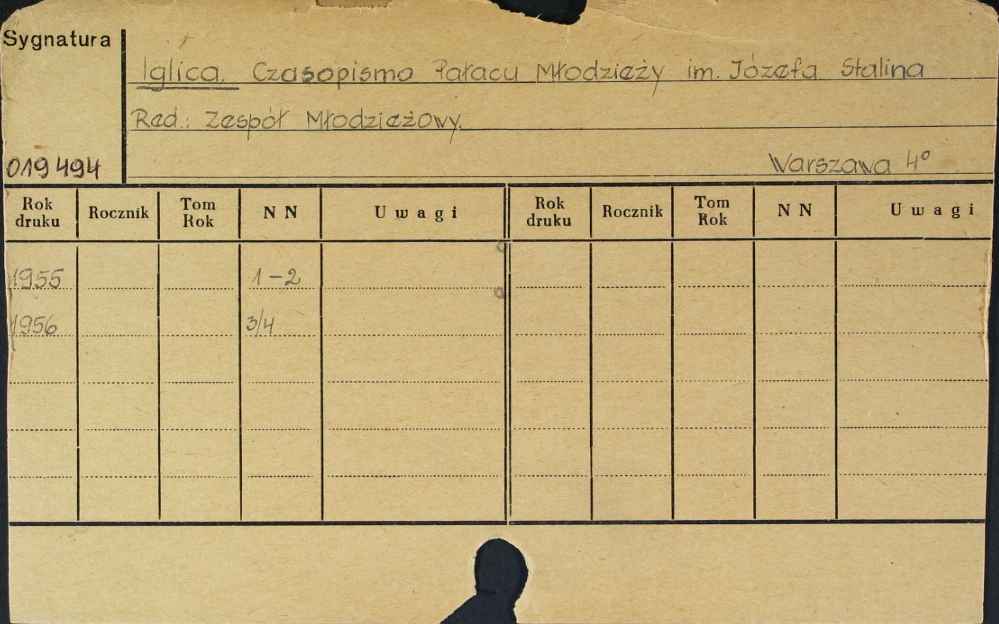 Sygnatura
Iglica. Czasopismo Pałacu Młodzieży im. Józefa Stalina
Red.: Zespół Młodzieżowy.
019494
Warszawa 4°
Rok druku Rocznik Tom Rok NN Uwagi Rok druku Rocznik Tom Rok NN Uwagi
1955 1-2
1956 3/4